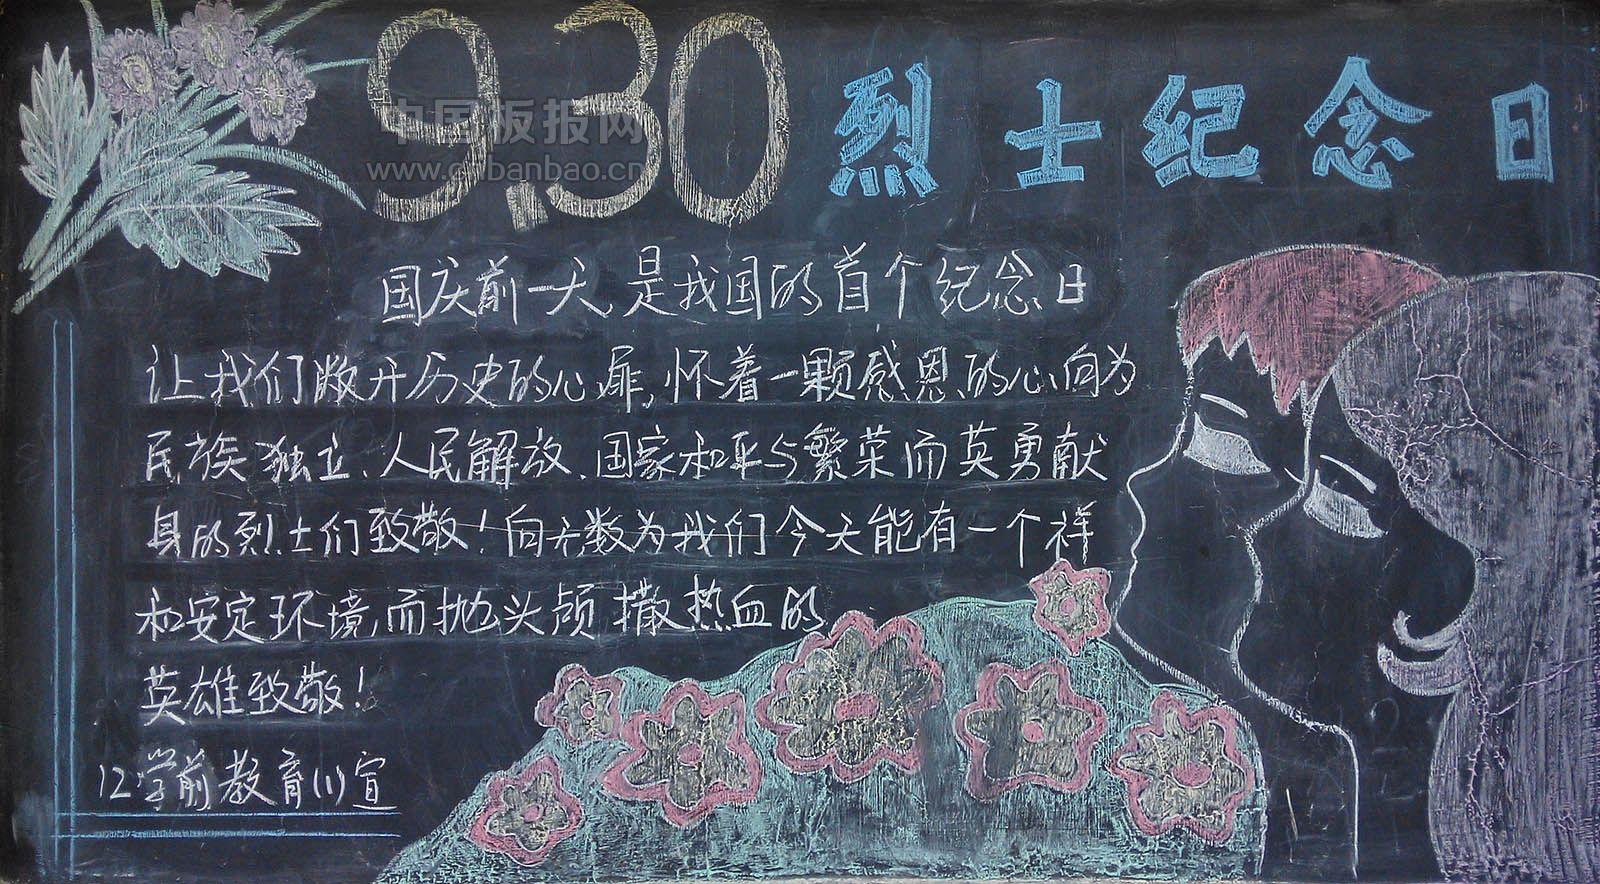 9.30 烈士纪念日
中国板报网
www.cnbanbao.cn
国庆前一天,是我国的首个纪念日
让我们敞开历史的心扉,怀着一颗感恩的心,向为
民族独立、人民解放、国家和平与繁荣而英勇献
身的烈士们致敬!向无数为我们今天能有一个祥
和安定环境,而抛头颅撒热血的
英雄致敬!
12学前教育(1)宣